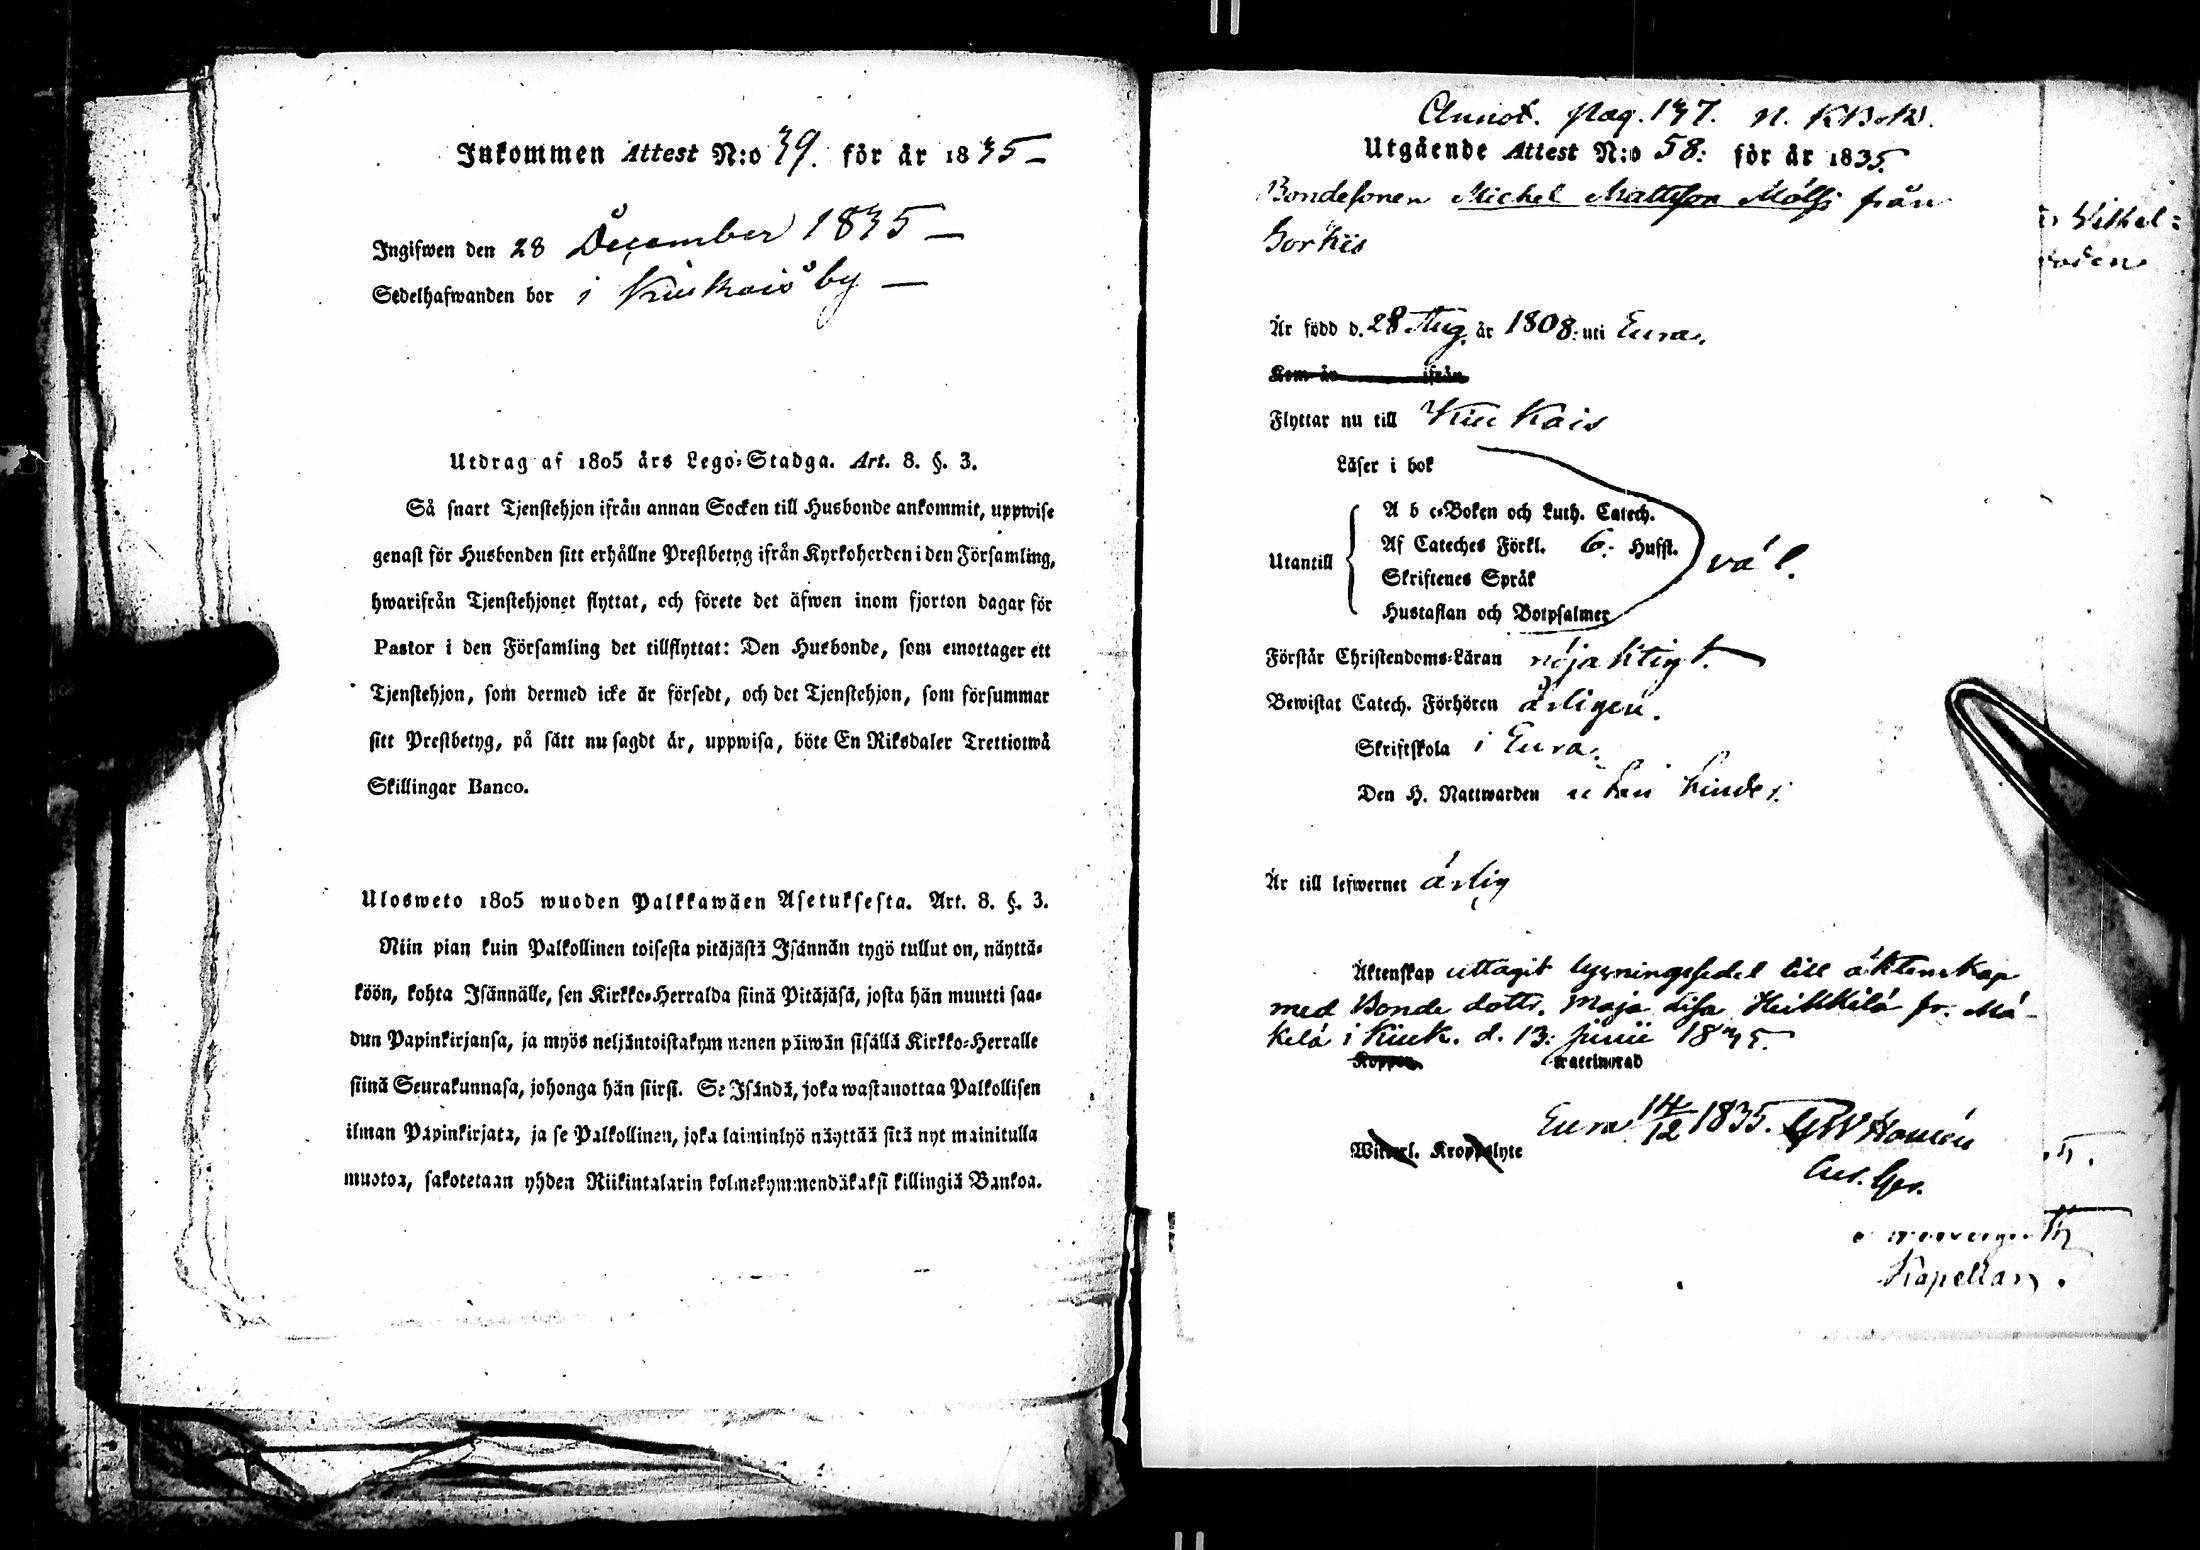 Inkommen Attest N:o 39. för år 1835 —
Ingifwen den 28 December 1835 —
Sedelhafwanden bor i Kiukais by —
Utdrag af 1805 års Lego-Stadga. Art. 8. §. 3.
Så snart Tjenstehjon ifrån annan Socken till Husbonde ankommit, uppwise
genast för Husbonden sitt erhållne Prestbetyg ifrån Kyrkoherden i den Församling,
hwarifrån Tjenstehjonet flyttat, och förete det äfwen inom fjorton dagar för
Pastor i den Församling det tillflyttat: Den Husbonde, som emottager ett
Tjenstehjon, som dermed icke är försedt, och det Tjenstehjon, som försummar
sitt Prestbetyg, på sätt nu sagdt är, uppwisa, böte En Riksdaler Trettiotwå
Skillingar Banco.
Ulosweto 1805 wuoden Palkkawäen Asetuksesta. Art. 8. §. 3.
Niin pian kuin Palkollinen toisesta pitäjästä Isännän tygö tullut on, näyttä-
köön, kohta Isännälle, sen Kirkko-Herralda siinä Pitäjäsä, josta hän muutti saa-
dun Papinkirjansa, ja myös neljäntoistakymmenen päiwän sisällä Kirkko-Herralle
siinä Seurakunnasa, johonga hän siirsi. Se Isändä, joka wastanottaa Palkollisen
ilman Papinkirjata, ja se Palkollinen, joka laiminlyö näyttää sitä nyt mainitulla
muotoa, sakotetaan yhden Riikintalarin kolmekymmendäkaksi killingiä Bankoa.
Annot. pag. 137. N. KBok.
Utgående Attest N:o 58: för år 1835.
Bondesonen Michel Mattsson Mölsi från
Sorkis
Är född d. 28 Aug. år 1808: uti Eura.
Kom år ifrån
Flyttar nu till Kiukais
Läser i bok
A b c-Boken och Luth. Catech.
Af Cateches Förkl. 6: Hufst.
Utantill väl.
Skriftenes Språk
Hustaflan och Botpsalmer
Förstår Christendoms-Läran nöjaktigt.
Bewistat Catech. Förhören årligen.
Skriftskola i Eura.
Den H. Nattwarden utan hinder.
Är till lefwernet ärlig
Äktenskap uttagit lysningssedel till äktenskap
med Bonde dottr. Maja Lisa Heikkilä fr. Mä-
kelä i Kiuk. d. 13: Junii 1835.
Koppor waccinerad
Eura 14/12 1835. GW Homén
Witterl. Kroppslyte
Kapellan.